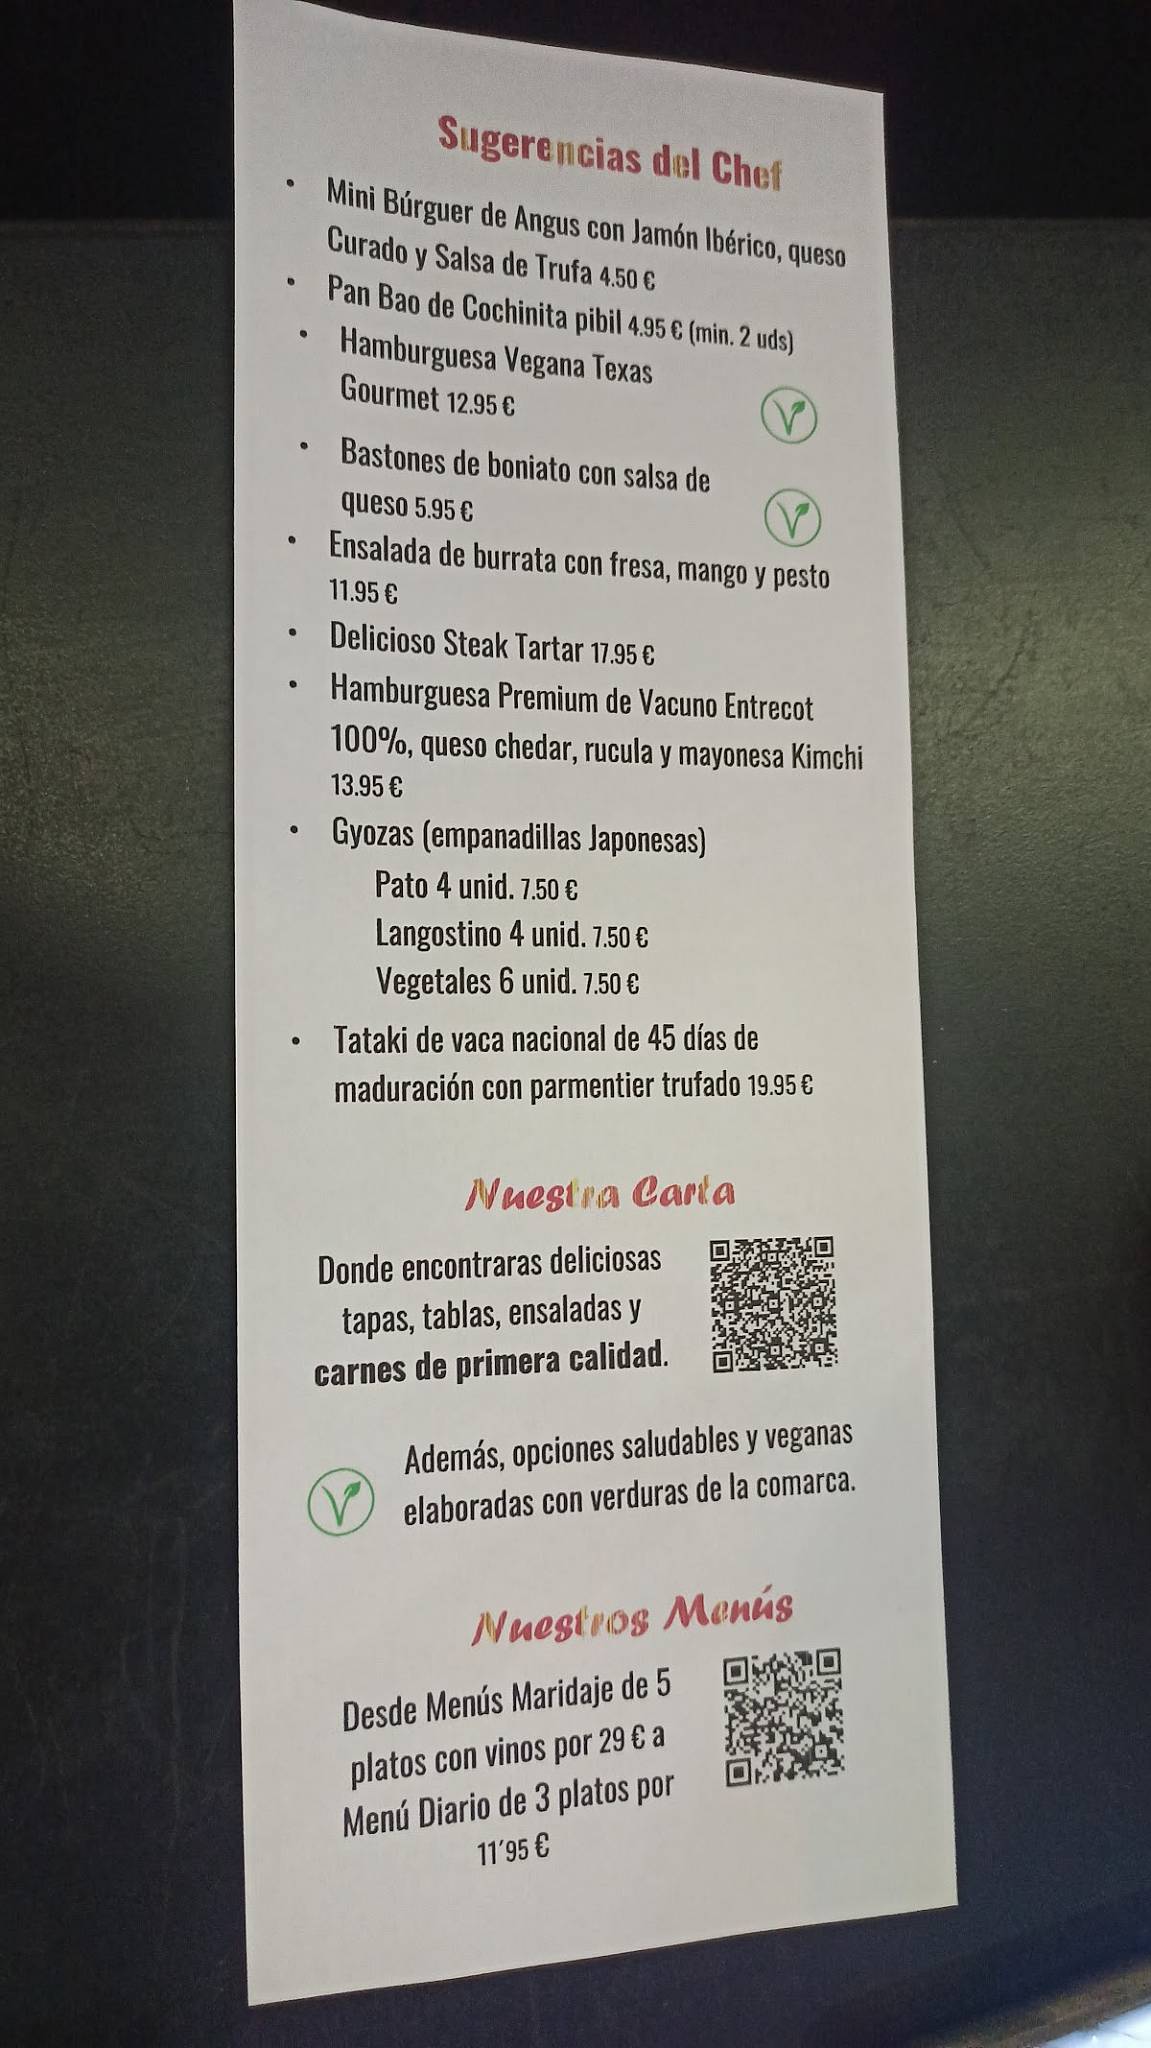 Sugerencias del Chef
• Mini Búrguer de Angus con Jamón Ibérico, queso
Curado y Salsa de Trufa 4.50 €
• Pan Bao de Cochinita pibil 4.95 € (min. 2 uds)
• Hamburguesa Vegana Texas
Gourmet 12.95 €
V
• Bastones de boniato con salsa de
queso 5.95 €
V
• Ensalada de burrata con fresa, mango y pesto
11.95 €
• Delicioso Steak Tartar 17.95 €
• Hamburguesa Premium de Vacuno Entrecot
100%, queso chedar, rucula y mayonesa Kimchi
13.95 €
• Gyozas (empanadillas Japonesas)
Pato 4 unid. 7.50 €
Langostino 4 unid. 7.50 €
Vegetales 6 unid. 7.50 €
• Tataki de vaca nacional de 45 días de
maduración con parmentier trufado 19.95 €
Nuestra Carta
Donde encontraras deliciosas
tapas, tablas, ensaladas y
carnes de primera calidad.
V
Además, opciones saludables y veganas
elaboradas con verduras de la comarca.
Nuestros Menús
Desde Menús Maridaje de 5
platos con vinos por 29 € a
Menú Diario de 3 platos por
11´95 €